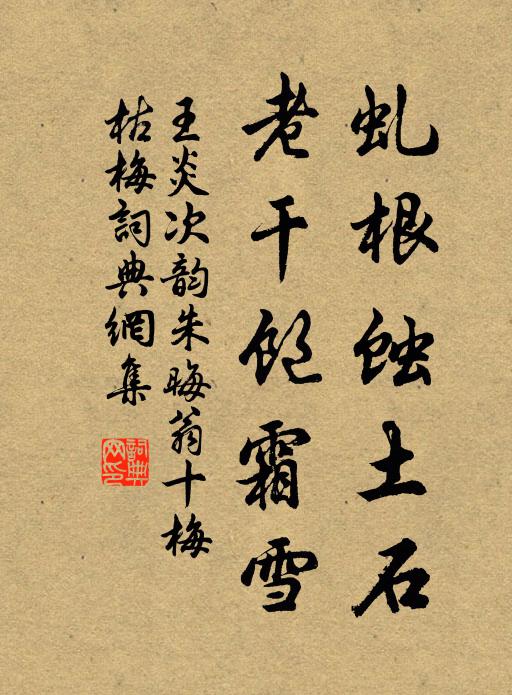 虬根蚀土石
老干饱霜雪
王炎次韵朱晦翁十梅
枯梅詞典網集
詞典网印